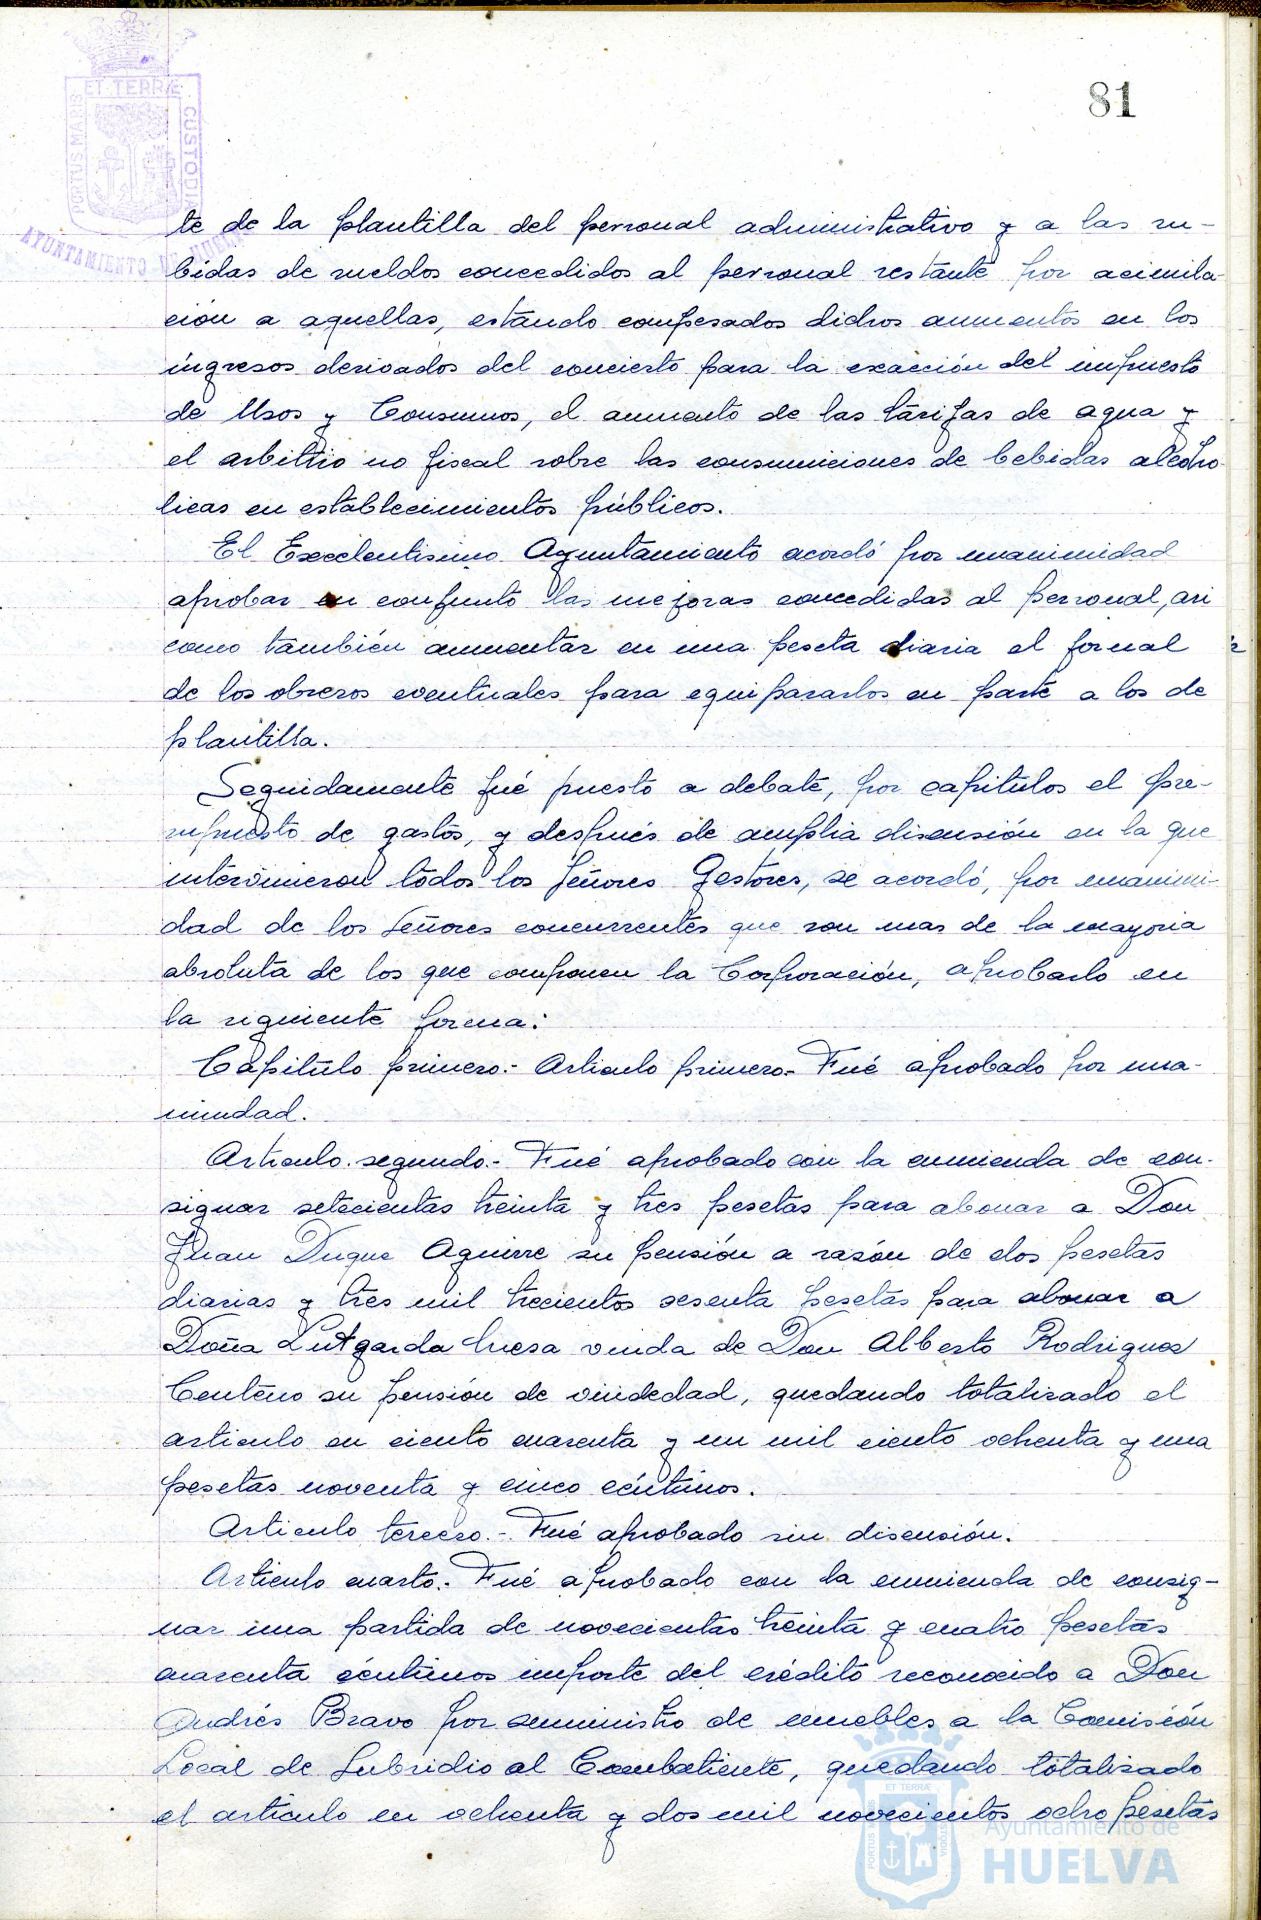 81
PORTUS MARIS ET TERRÆ CUSTODIA
AYUNTAMIENTO DE HUELVA
te de la plantilla del personal administrativo y a las su-
bidas de sueldos concedidos al personal restante por acimila-
ción a aquellas, estando compesados dichos aumentos en los
ingresos derivados del concierto para la exacción del impuesto
de Usos y Consumos, el aumento de las tarifas de agua y
el arbitrio no fiscal sobre las consumiciones de bebidas alcoho-
licas en establecimientos públicos.
El Excelentisimo Ayuntamiento acordó por unanimidad
aprobar en conjunto las mejoras concedidas al personal, asi
como también aumentar en una peseta diaria el jornal
de los obreros eventuales para equipararlos en parte a los de
plantilla.
Seguidamente fué puesto a debate, por capitulos el pre-
supuesto de gastos, y después de amplia discusión en la que
intervinieron todos los Señores Gestores, se acordó, por unanimi-
dad de los Señores concurrentes que son mas de la mayoria
absoluta de los que componen la Corporación, aprobarlo en
la siguiente forma:
Capitulo primero.- Articulo primero.- Fué aprobado por una-
nimidad.
Articulo segundo.- Fué aprobado con la enmienda de con-
signar setecientas treinta y tres pesetas para abonar a Don
Juan Duque Aguirre su pensión a razón de dos pesetas
diarias y tres mil trecientos sesenta pesetas para abonar a
Doña Lutgarda Mesa viuda de Don Alberto Rodriguez
Centeno su pensión de viudedad, quedando totalizado el
articulo en ciento cuarenta y un mil ciento ochenta y una
pesetas noventa y cinco céntimos.
Articulo tercero.- Fué aprobado sin discusión.
Articulo cuarto.- Fué aprobado con la enmienda de consig-
nar una partida de novecientas treinta y cuatro pesetas
cuarenta céntimos importe del crédito reconocido a Don
Andrés Bravo por suministro de muebles a la Comisión
Local de Subsidio al Combatiente, quedando totalizado
el articulo en ochenta y dos mil novecientos ocho pesetas
PORTUS MARIS ET TERRÆ CUSTODIA
Ayuntamiento de
HUELVA